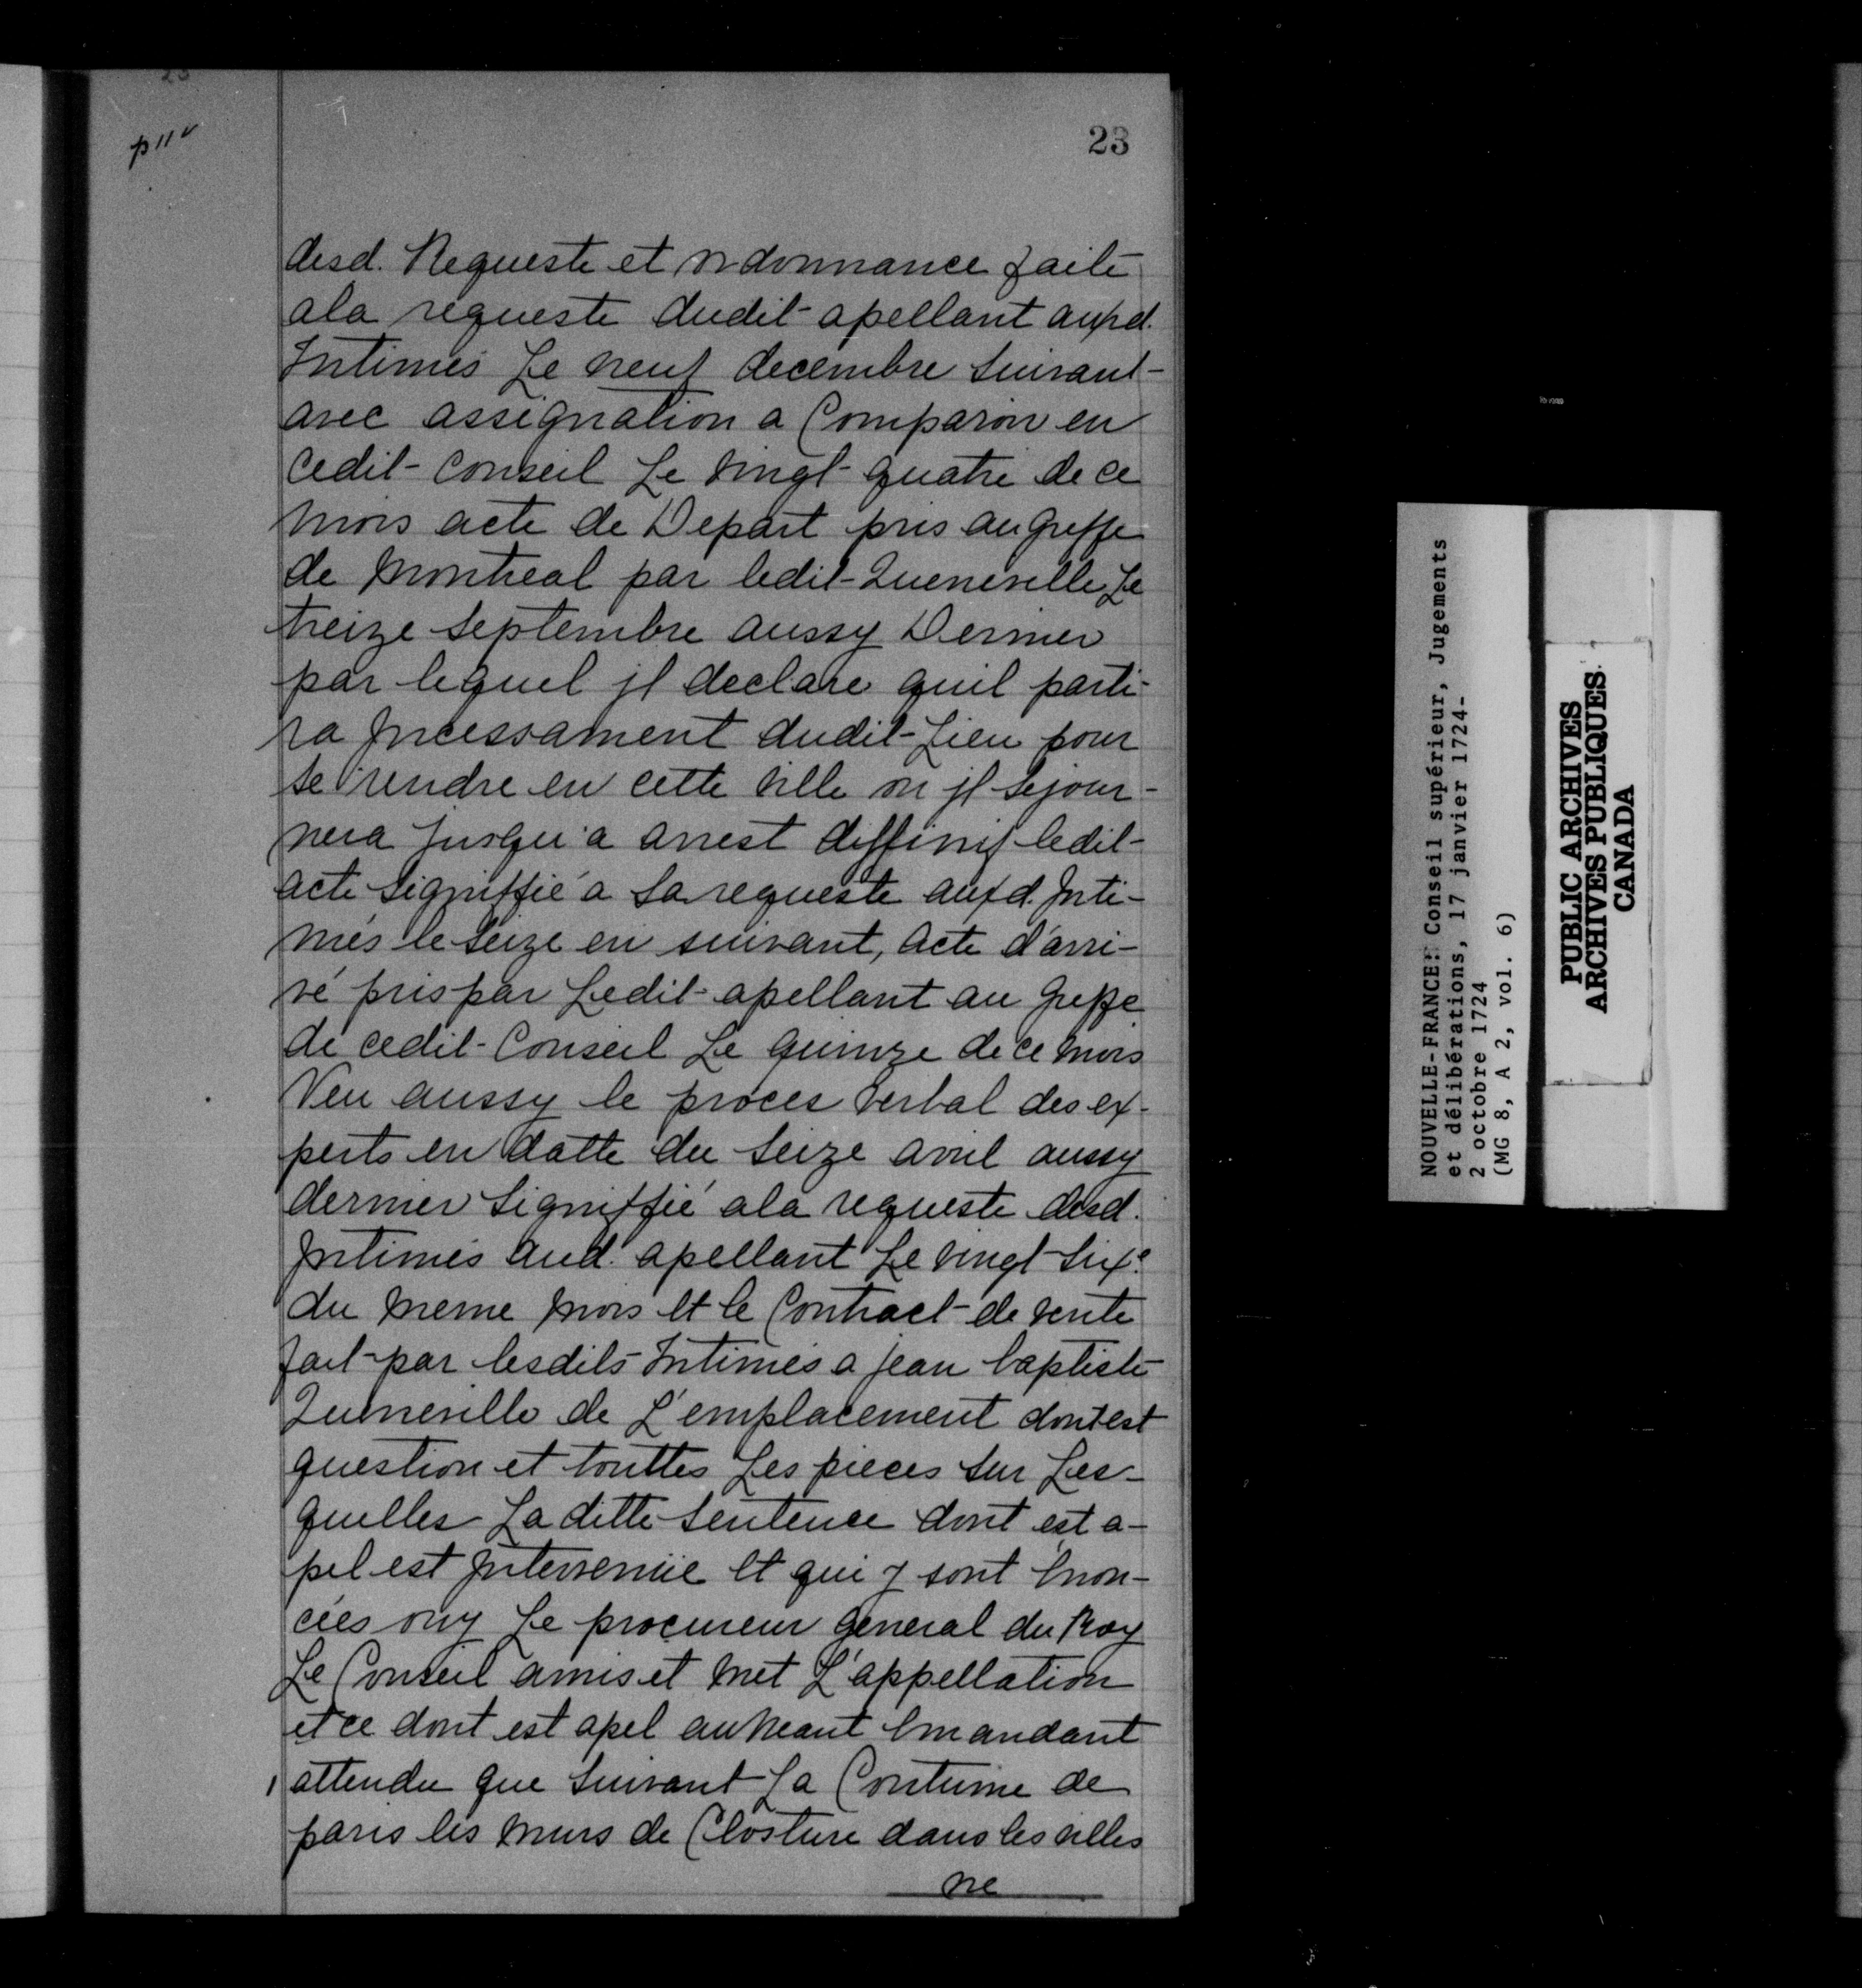 23
p 11 v
desd. Requeste et ordonnance faite
ala requeste dudit apellant auxd.
Intimés Le neuf decembre suivant
avec assignation a Comparoir en
cedit Conseil Le vingt quatre de ce
mois acte de Depart pris au greffe
de Montreal par ledit Queneville Le
treize septembre aussy Dernier
par lequel jl declare quil parti-
ra jncessament dudit Lieu pour
se rendre en cette ville ou jl sejour-
nera Jusqu'a arrest diffinif ledit
acte signiffié a sa requeste auxd. jnti-
més le seize en suivant, acte d'arri-
vé pris par Ledit apellant au greffe
de cedit Conseil Le quinze de ce mois
Veu aussy le proces verbal des ex-
perts en datte du seize avril aussy
dernier signiffié ala requeste desd.
jntimés aud. apellant Le vingt six.e
du meme mois et le Contract de vente
fait par lesdits Intimés a jean baptiste
Queneville de L'emplacement dont est
question et touttes Les pieces sur Les-
quelles La ditte sentence dont est a-
pel est jntervenüe et qui y sont énon-
cées ouy Le procureur general du Roy
Le Conseil a mis et met L'appellation
et ce dont est apel au neant Emandant
attendu que suivant La Coutume de
paris les murs de Closture dans les villes
ne
NOUVELLE-FRANCE: Conseil supérieur, Jugements
et délibérations, 17 janvier 1724-
2 octobre 1724
(MG 8, A 2, vol. 6)
PUBLIC ARCHIVES
ARCHIVES PUBLIQUES
CANADA